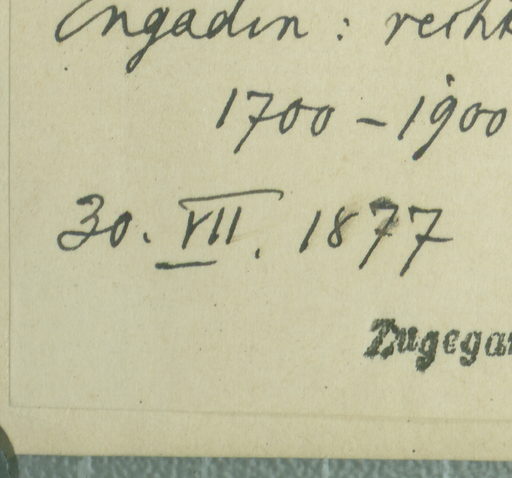 Engadin: recht
1700-1900
30. VII. 1877
Zugegan